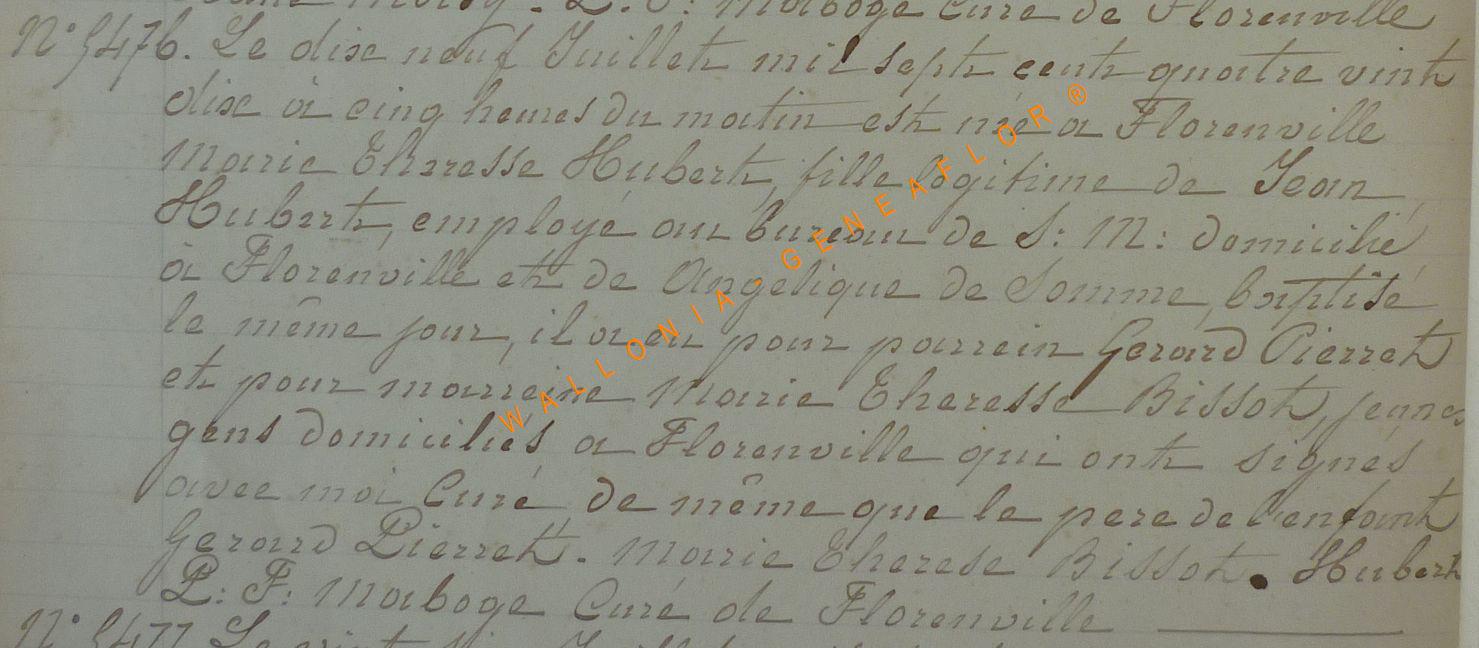 P. F. Maboge Curé de Florenville
N° 5476. Le dix neuf Juillet mil sept cent quatre vint
dix à cinq heures du matin est née a Florenville
Marie Theresse Hubert, fille légitime de Jean
Hubert, employé au bureau de S: M: domicilié
à Florenville et de Angelique de Somme, baptisé
le même jour, il a eu pour parrein Gerard Pierret
et pour marreine Marie Theresse Bissot, jeunes
gens domiciliés a Florenville qui ont signés
avec moi Curé de même que le pere de l'enfant
Gerard Pierret. Marie Therese Bissot. Hubert
P: F: Maboge Curé de Florenville
N° 5477 Le vint
WALLONIA - GENEAFLOR ®